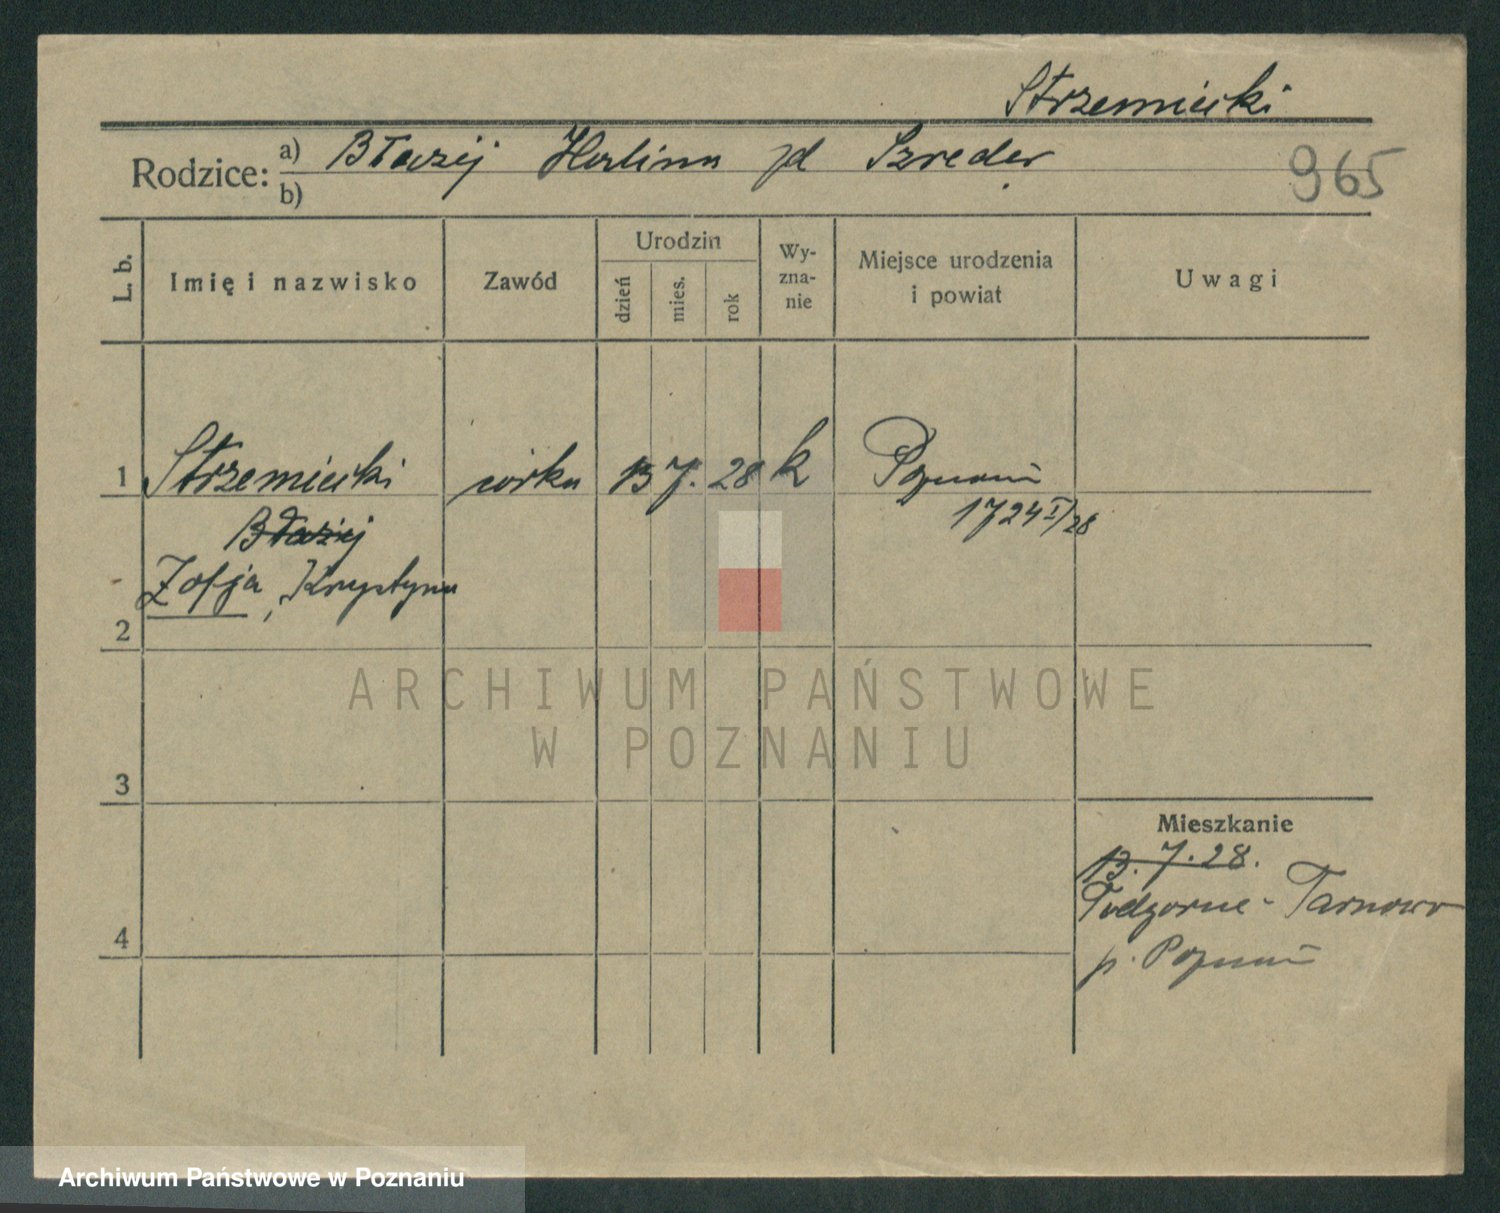 Strzemiecki
Rodzice: a) Błażej Halina zd Szreder
b)
965
L. b.
Imię i nazwisko
Zawód
Urodzin
dzień
mies.
rok
Wy-
zna-
nie
Miejsce urodzenia
i powiat
Uwagi
1 Strzemiecki córka 13 7. 28 k Poznań
1724 I/28
Błażej
Zofja, Krystyna
2
ARCHIWUM PAŃSTWOWE
W POZNANIU
3
Mieszkanie
13. 7. 28.
Podgorne - Tarnowo
4
p. Poznań
Archiwum Państwowe w Poznaniu